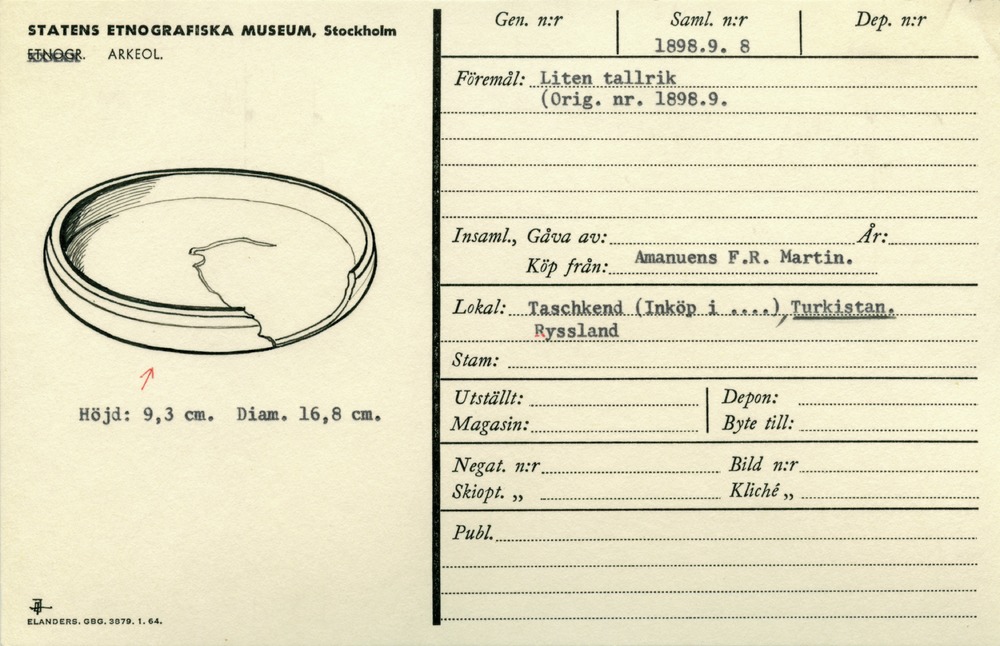 STATENS ETNOGRAFISKA MUSEUM, Stockholm
ETNOGR. ARKEOL.
Höjd: 9,3 cm. Diam. 16,8 cm.
ELANDERS. GBG. 3879. 1. 64.
Gen. n:r Saml. n:r Dep. n:r
1898.9. 8
Föremål: Liten tallrik
(Orig. nr. 1898.9.
Insaml., Gåva av: År:
Köp från: Amanuens F.R. Martin.
Lokal: Taschkend (Inköp i ....), Turkistan.
Ryssland
Stam:
Utställt: Depon:
Magasin: Byte till:
Negat. n:r Bild n:r
Skiopt. „ Kliché „
Publ.